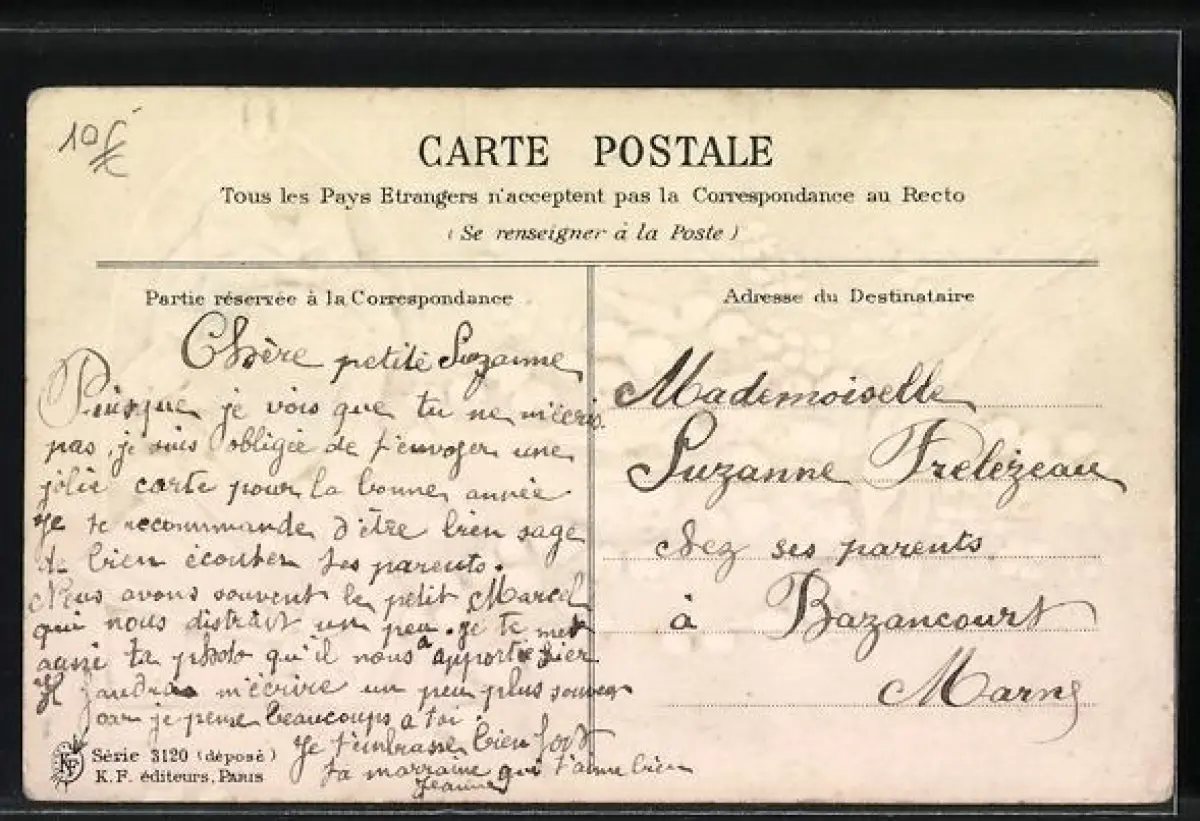 10€
CARTE POSTALE
Tous les Pays Etrangers n'acceptent pas la Correspondance au Recto
(Se renseigner à la Poste)
Partie réservée à la Correspondance
Chère petite Suzanne
Puisque je vois que tu ne m'écris
pas, je suis obligée de t'envoyer une
jolie carte pour la bonne année
Je te recommande d'être bien sage
et bien écouter tes parents.
Nous avons souvent le petit Marcel
qui nous distrait un peu. Je te met
aussi ta photo qu'il nous a apporté hier
Il faudra m'écrire un peu plus souvent
car je pense beaucoups a toi.
Je t'embrasse bien fort
ta marraine qui t'aime bien
Jeanne
KF
Série 3120 (déposé)
K. F. éditeurs, PARIS
Adresse du Destinataire
Mademoiselle
Suzanne Frelezeau
chez ses parents
à Bazancourt
Marne